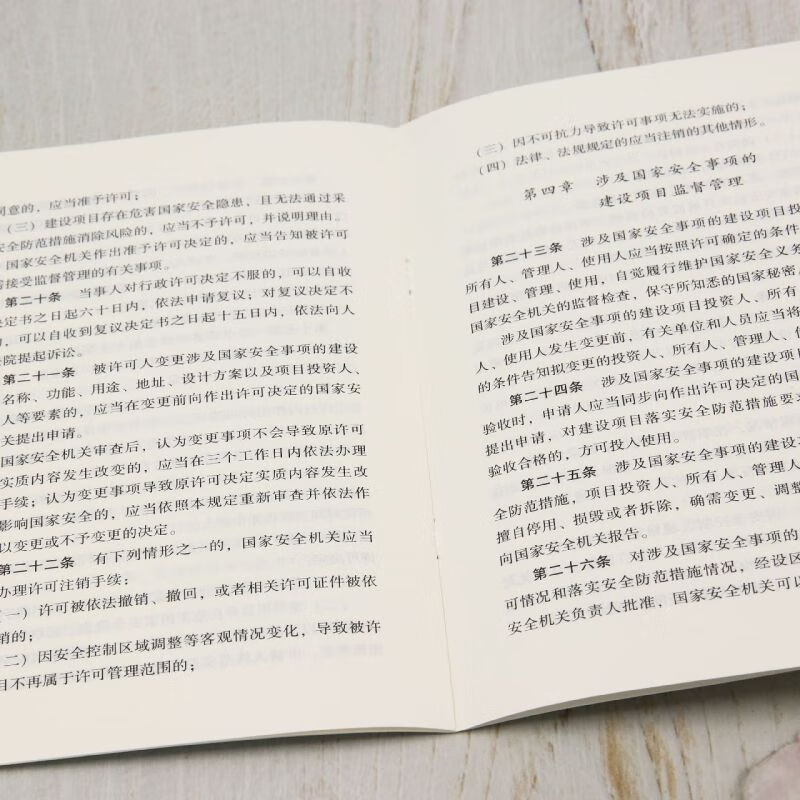 同意的，应当准予许可；
（三）建设项目存在危害国家安全隐患，且无法通过采
安全防范措施消除风险的，应当不予许可，并说明理由。
国家安全机关作出准予许可决定的，应当告知被许可
接受监督管理的有关事项。
第二十条 当事人对行政许可决定不服的，可以自收
决定书之日起六十日内，依法申请复议；对复议决定不
，可以自收到复议决定书之日起十五日内，依法向人
院提起诉讼。
第二十一条 被许可人变更涉及国家安全事项的建设
名称、功能、用途、地址、设计方案以及项目投资人、
人等要素的，应当在变更前向作出许可决定的国家安
关提出申请。
国家安全机关审查后，认为变更事项不会导致原许可
实质内容发生改变的，应当在三个工作日内依法办理
手续；认为变更事项导致原许可决定实质内容发生改
影响国家安全的，应当依照本规定重新审查并依法作
以变更或不予变更的决定。
第二十二条 有下列情形之一的，国家安全机关应当
办理许可注销手续：
（一）许可被依法撤销、撤回，或者相关许可证件被依
销的；
（二）因安全控制区域调整等客观情况变化，导致被许
目不再属于许可管理范围的；
（三）因不可抗力导致许可事项无法实施的；
（四）法律、法规规定的应当注销的其他情形。
第四章 涉及国家安全事项的
建设项目监督管理
第二十三条 涉及国家安全事项的建设项目投
所有人、管理人、使用人应当按照许可确定的条件
目建设、管理、使用，自觉履行维护国家安全义务
国家安全机关的监督检查，保守所知悉的国家秘密。
涉及国家安全事项的建设项目投资人、所有
人、使用人发生变更前，有关单位和人员应当将
的条件告知拟变更的投资人、所有人、管理人、使
第二十四条 涉及国家安全事项的建设项目
验收时，申请人应当同步向作出许可决定的国
提出申请，对建设项目落实安全防范措施要
验收合格的，方可投入使用。
第二十五条 涉及国家安全事项的建设
全防范措施，项目投资人、所有人、管理人
擅自停用、损毁或者拆除，确需变更、调整
向国家安全机关报告。
第二十六条 对涉及国家安全事项的
可情况和落实安全防范措施情况，经设区
安全机关负责人批准，国家安全机关可以